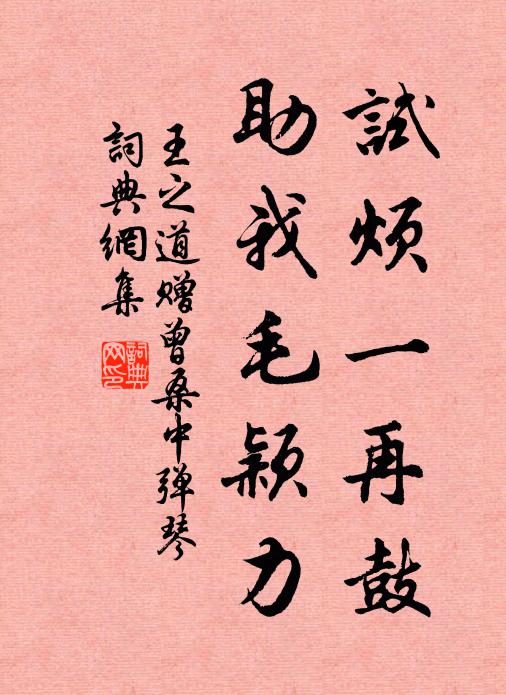 試煩一再鼓
助我毛穎力
王之道贈曾桑中弹琴
詞典網集
詞典网印